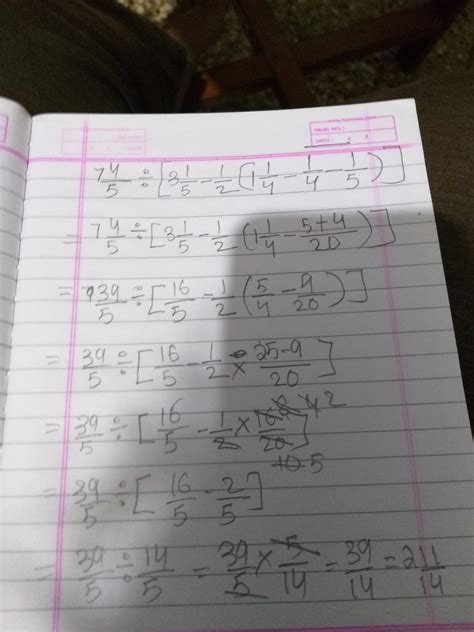 PAGE NO.:
DATE: / /
7 4/5 ÷ [3 1/5 - 1/2 (1 1/4 - 1/4 - 1/5)]
= 7 4/5 ÷ [3 1/5 - 1/2 (1 1/4 - 5+4/20)]
= 39/5 ÷ [16/5 - 1/2 (5/4 - 9/20)]
= 39/5 ÷ [16/5 - 1/2 × 25-9/20]
= 39/5 ÷ [16/5 - 1/2 × 16/20] 8 4 2 10 5
= 39/5 ÷ [16/5 - 2/5]
= 39/5 ÷ 14/5 = 39/5 × 5/14 = 39/14 = 2 11/14